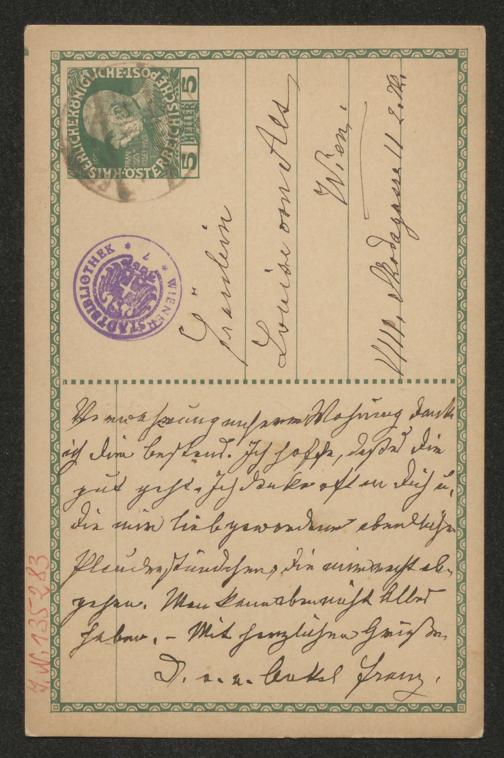 KAISERLICHEKÖNIGLICHE ÖSTERREICHISCHE POST
5 HELLER 5
WIENER STADTBIBLIOTHEK
Fräulein
Louise von Ales
Wien.
VIII. Skodagasse 11 2. St.
Verwahrung unserer Wohnung dank
ich dir bestens. Ich hoffe, daß es dir
gut geht. Ich denke oft an Dich u.
die mir liebgewordenen abendlichen
Plauderstündchen, die mir recht ab-
gehen. Man kann aber nicht Alles
haben. – Mit herzlichen Grüßen
D. Onkel Franz.
J.N. 135283